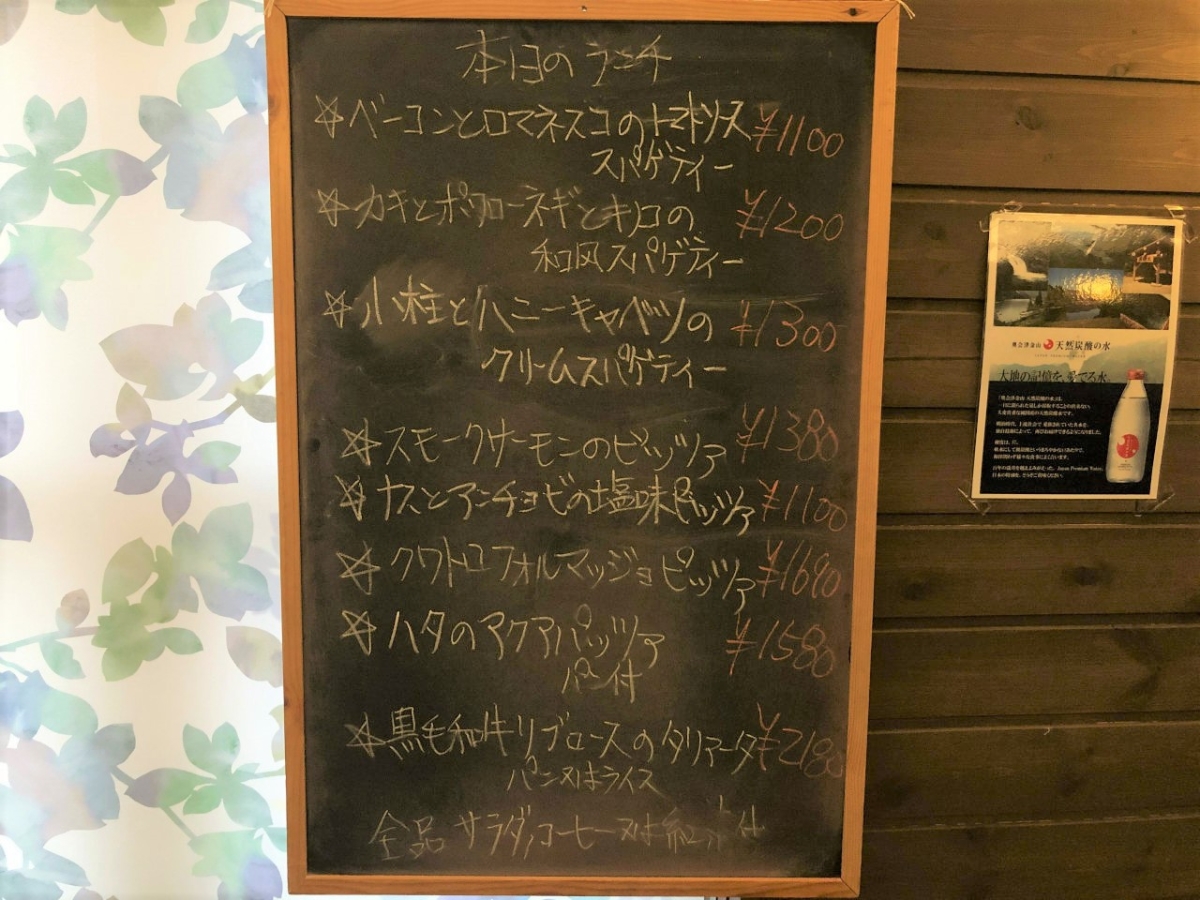 本日のランチ
☆ベーコンとロマネスコのトマトソース ¥1100
スパゲティー
☆カキとポワローネギとキノコの ¥1200
和風スパゲティー
☆小柱とハニーキャベツの ¥1300
クリームスパゲティー
☆スモークサーモンのピッツァ ¥1380
☆ナスとアンチョビの塩味ピッツァ ¥1100
☆クワトロフォルマッジョピッツァ ¥1680
☆ハタのアクアパッツァ ¥1580
パン付
☆黒毛和牛リブロースのタリアータ ¥2180
パン又はライス
全品 サラダ,コーヒー又は紅茶付
奥会津金山 天然炭酸の水
大地の記憶を、愛でる水。